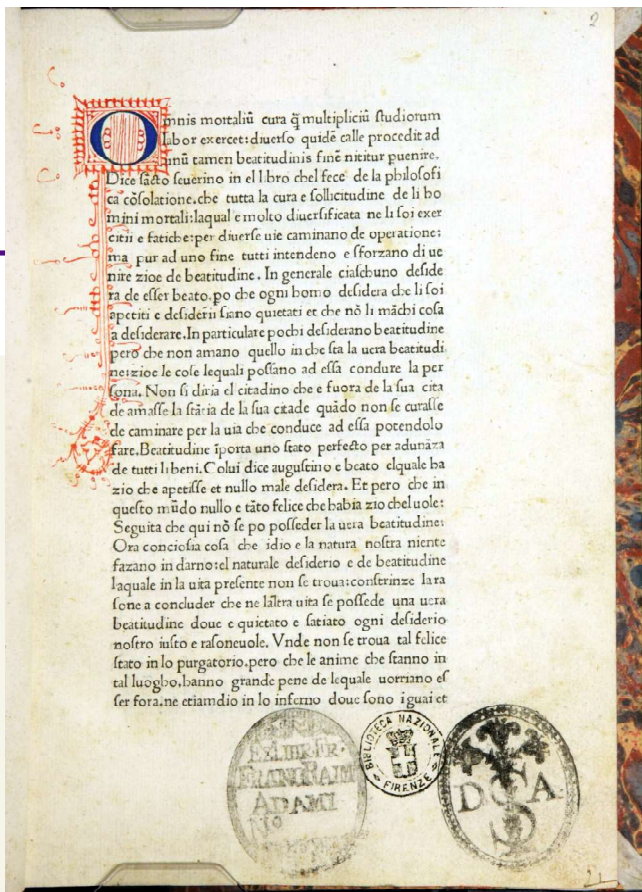 2
Omnis mortaliū cura q̄ multipliciū studiorum
labor exercet: diuerso quidē calle procedit ad
unū tamen beatitudinis finē nititur puenire.
Dice sācto seuerino in el libro chel fece de la philosofi
ca cōsolatione. che tutta la cura e sollicitudine de li ho
mini mortali: laqual e molto diuersificata ne li soi exer
citii e fatiche: per diuerse uie caminano de operatione:
ma pur ad uno fine tutti intendeno e sforzano di ue
nire zioe de beatitudine. In generale ciaschuno deside
ra de esser beato. po che ogni homo desidera che li soi
apetiti e desiderii siano quietati et che nō li māchi cosa
a desiderare. In particulare pochi desiderano beatitudine
pero che non amano quello in che sta la uera beatitudi
ne: zioe le cose lequali possano ad essa condure la per
sona. Non si diria el citadino che e fuora de la sua cita
de amasse la stātia de la sua citade quādo non se curasse
de caminare per la uia che conduce ad essa potendolo
fare. Beatitudine īporta uno stato perfecto per adunāza
de tutti li beni. Colui dice augustino e beato elquale ha
zio che apetisse et nullo male desidera. Et pero che in
questo mūdo nullo e tāto felice che habia zio chel uole:
Seguita che qui nō se po posseder la uera beatitudine:
Ora conciosia cosa che idio e la natura nostra niente
fazano in darno: el naturale desiderio e de beatitudine
laquale in la uita presente non se troua: constrinze la ra
sone a concluder che ne laltra uita se possede una uera
beatitudine doue e quietato e satiato ogni desiderio
nostro iusto e rasoneuole. Vnde non se troua tal felice
stato in lo purgatorio. pero che le anime che stanno in
tal luogho. hanno grande pene de lequale uorriano es
ser fora. ne etiamdio in lo inferno doue sono i guai et
EX LIBR. FR.
FRANC RAIM
ADAMI
No
BIBLIOTECA NAZIONALE
FIRENZE
D S A